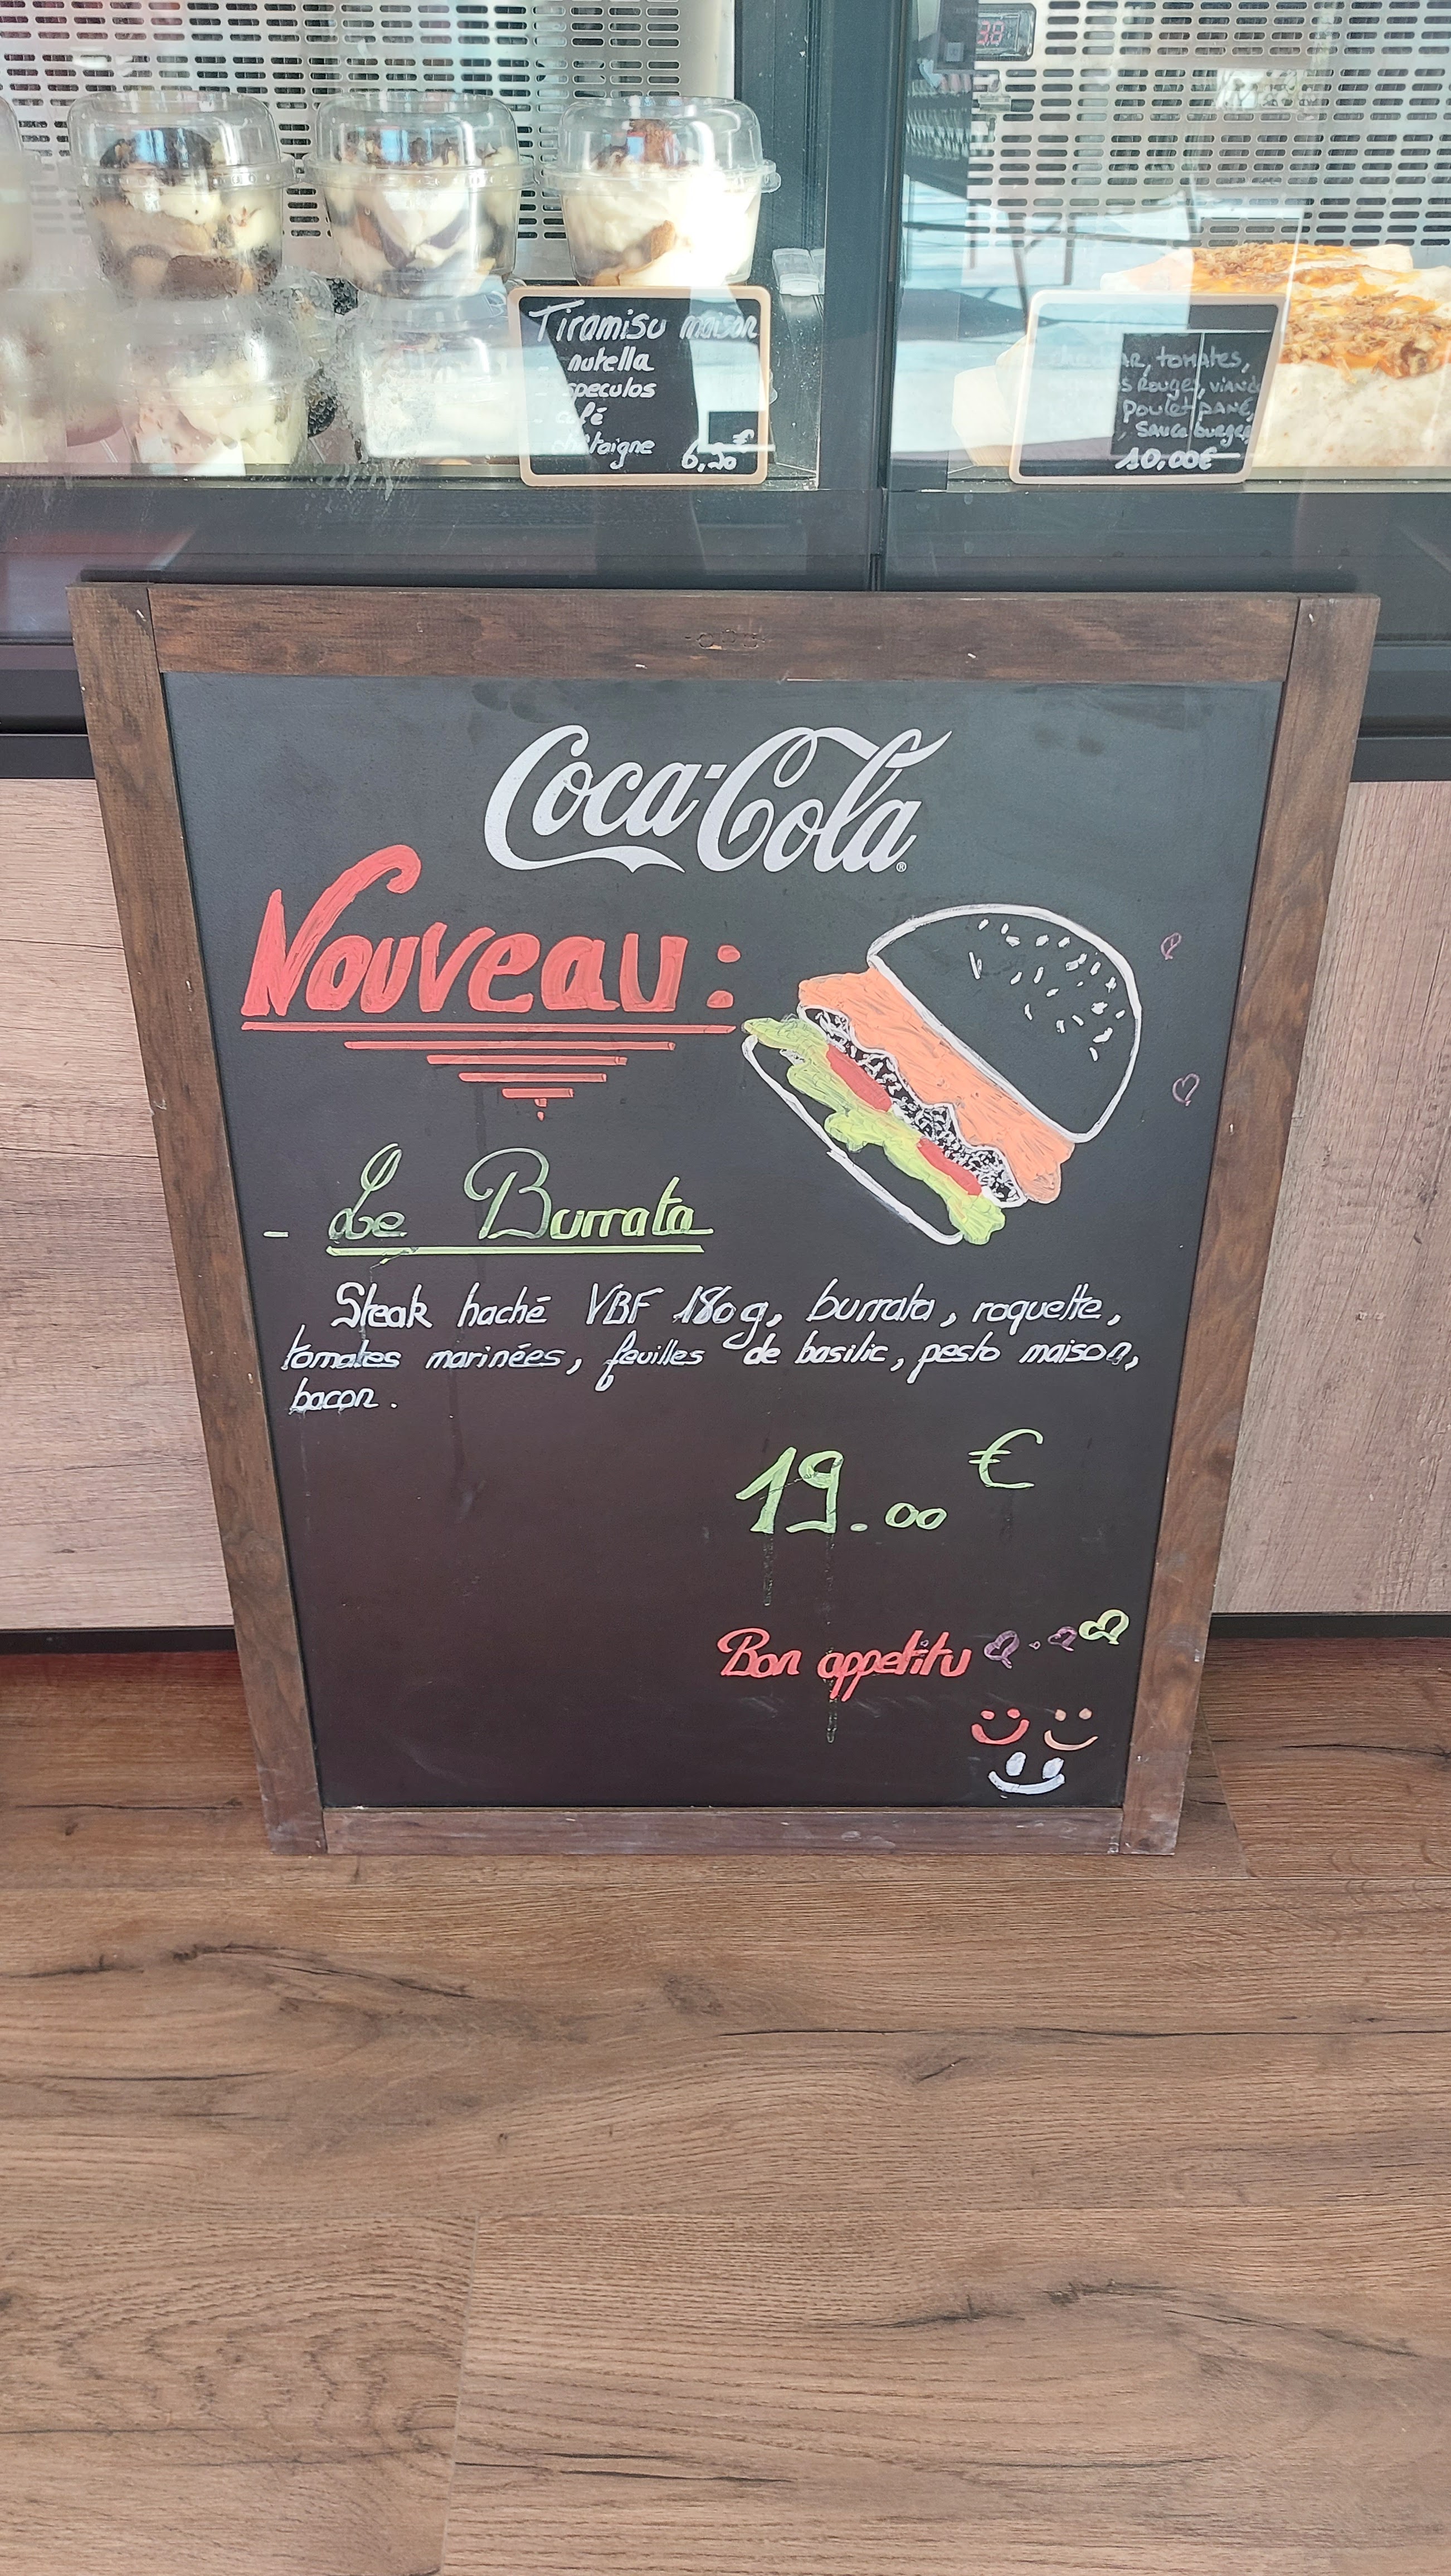 Tiramisu maison
nutella
speculos
café
6,90€
tomates,
Rouges, viande
Poulet pané,
sauce burger
10,00€
Coca-Cola
Nouveau:
- Le Burrata
Steak haché VBF 180g, burrata, roquette,
tomates marinées, feuilles de basilic, pesto maison,
bacon.
19.00 €
Bon appetitu